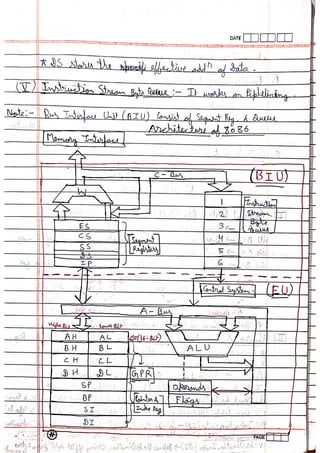 DATE
* DS stores the effective addⁿ of Data.
(V) Instruction Stream Byte Queue :- It works on Pipelining.
Note:- Bus Interface Unit (BIU) Consist of Segment Reg. & Queue
Architecture of 8086
Memory Interface
C - Bus
(BIU)
1
2
3
4
5
6
Instruction
Stream
Byte
Queue
ES
CS
SS
DS
IP
Segment
Registers
Control System
(EU)
A - Bus
Higher Bit
Lower Bit
(16-Bit)
AH AL
BH BL
CH CL
DH DL
SP
BP
SI
DI
GPR
Pointer &
Index Reg
ALU
Operands
Flags
PAGE